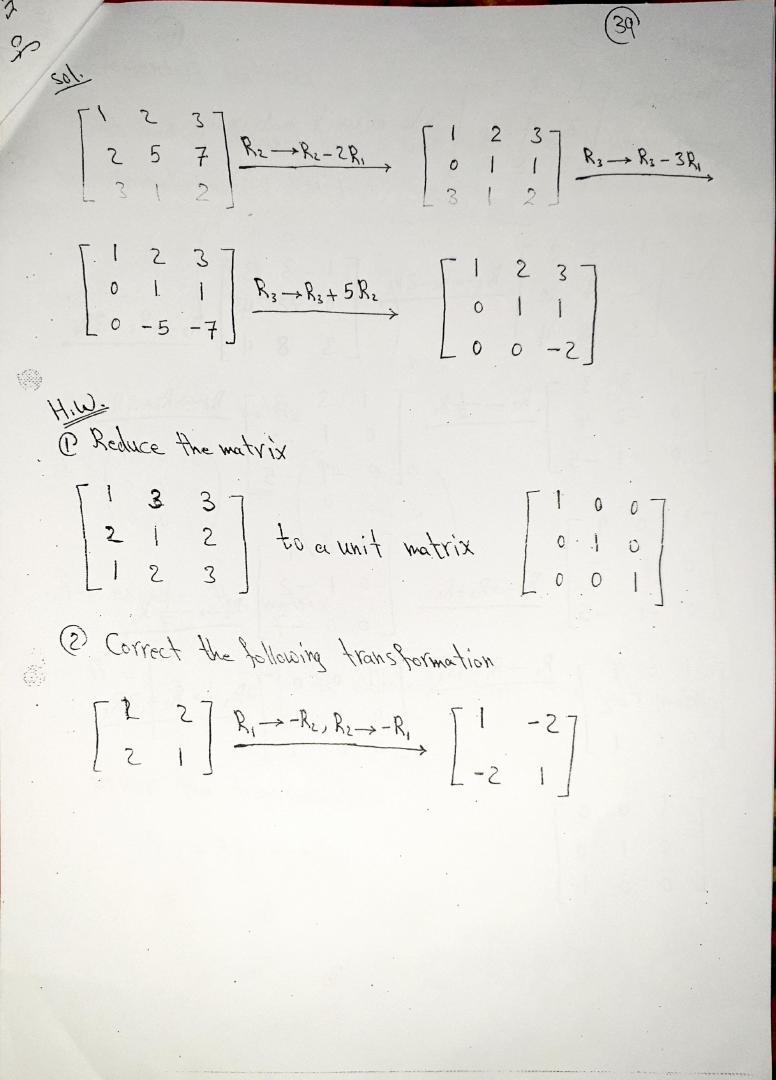 39
sol.
[1 2 3; 2 5 7; 3 1 2] R₂→R₂-2R₁ [1 2 3; 0 1 1; 3 1 2] R₃→R₃-3R₁
[1 2 3; 0 1 1; 0 -5 -7] R₃→R₃+5R₂ [1 2 3; 0 1 1; 0 0 -2]
H.W.
① Reduce the matrix
[1 3 3; 2 1 2; 1 2 3] to a unit matrix [1 0 0; 0 1 0; 0 0 1]
② Correct the following transformation
[1 2; 2 1] R₁→-R₂, R₂→-R₁ [1 -2; -2 1]